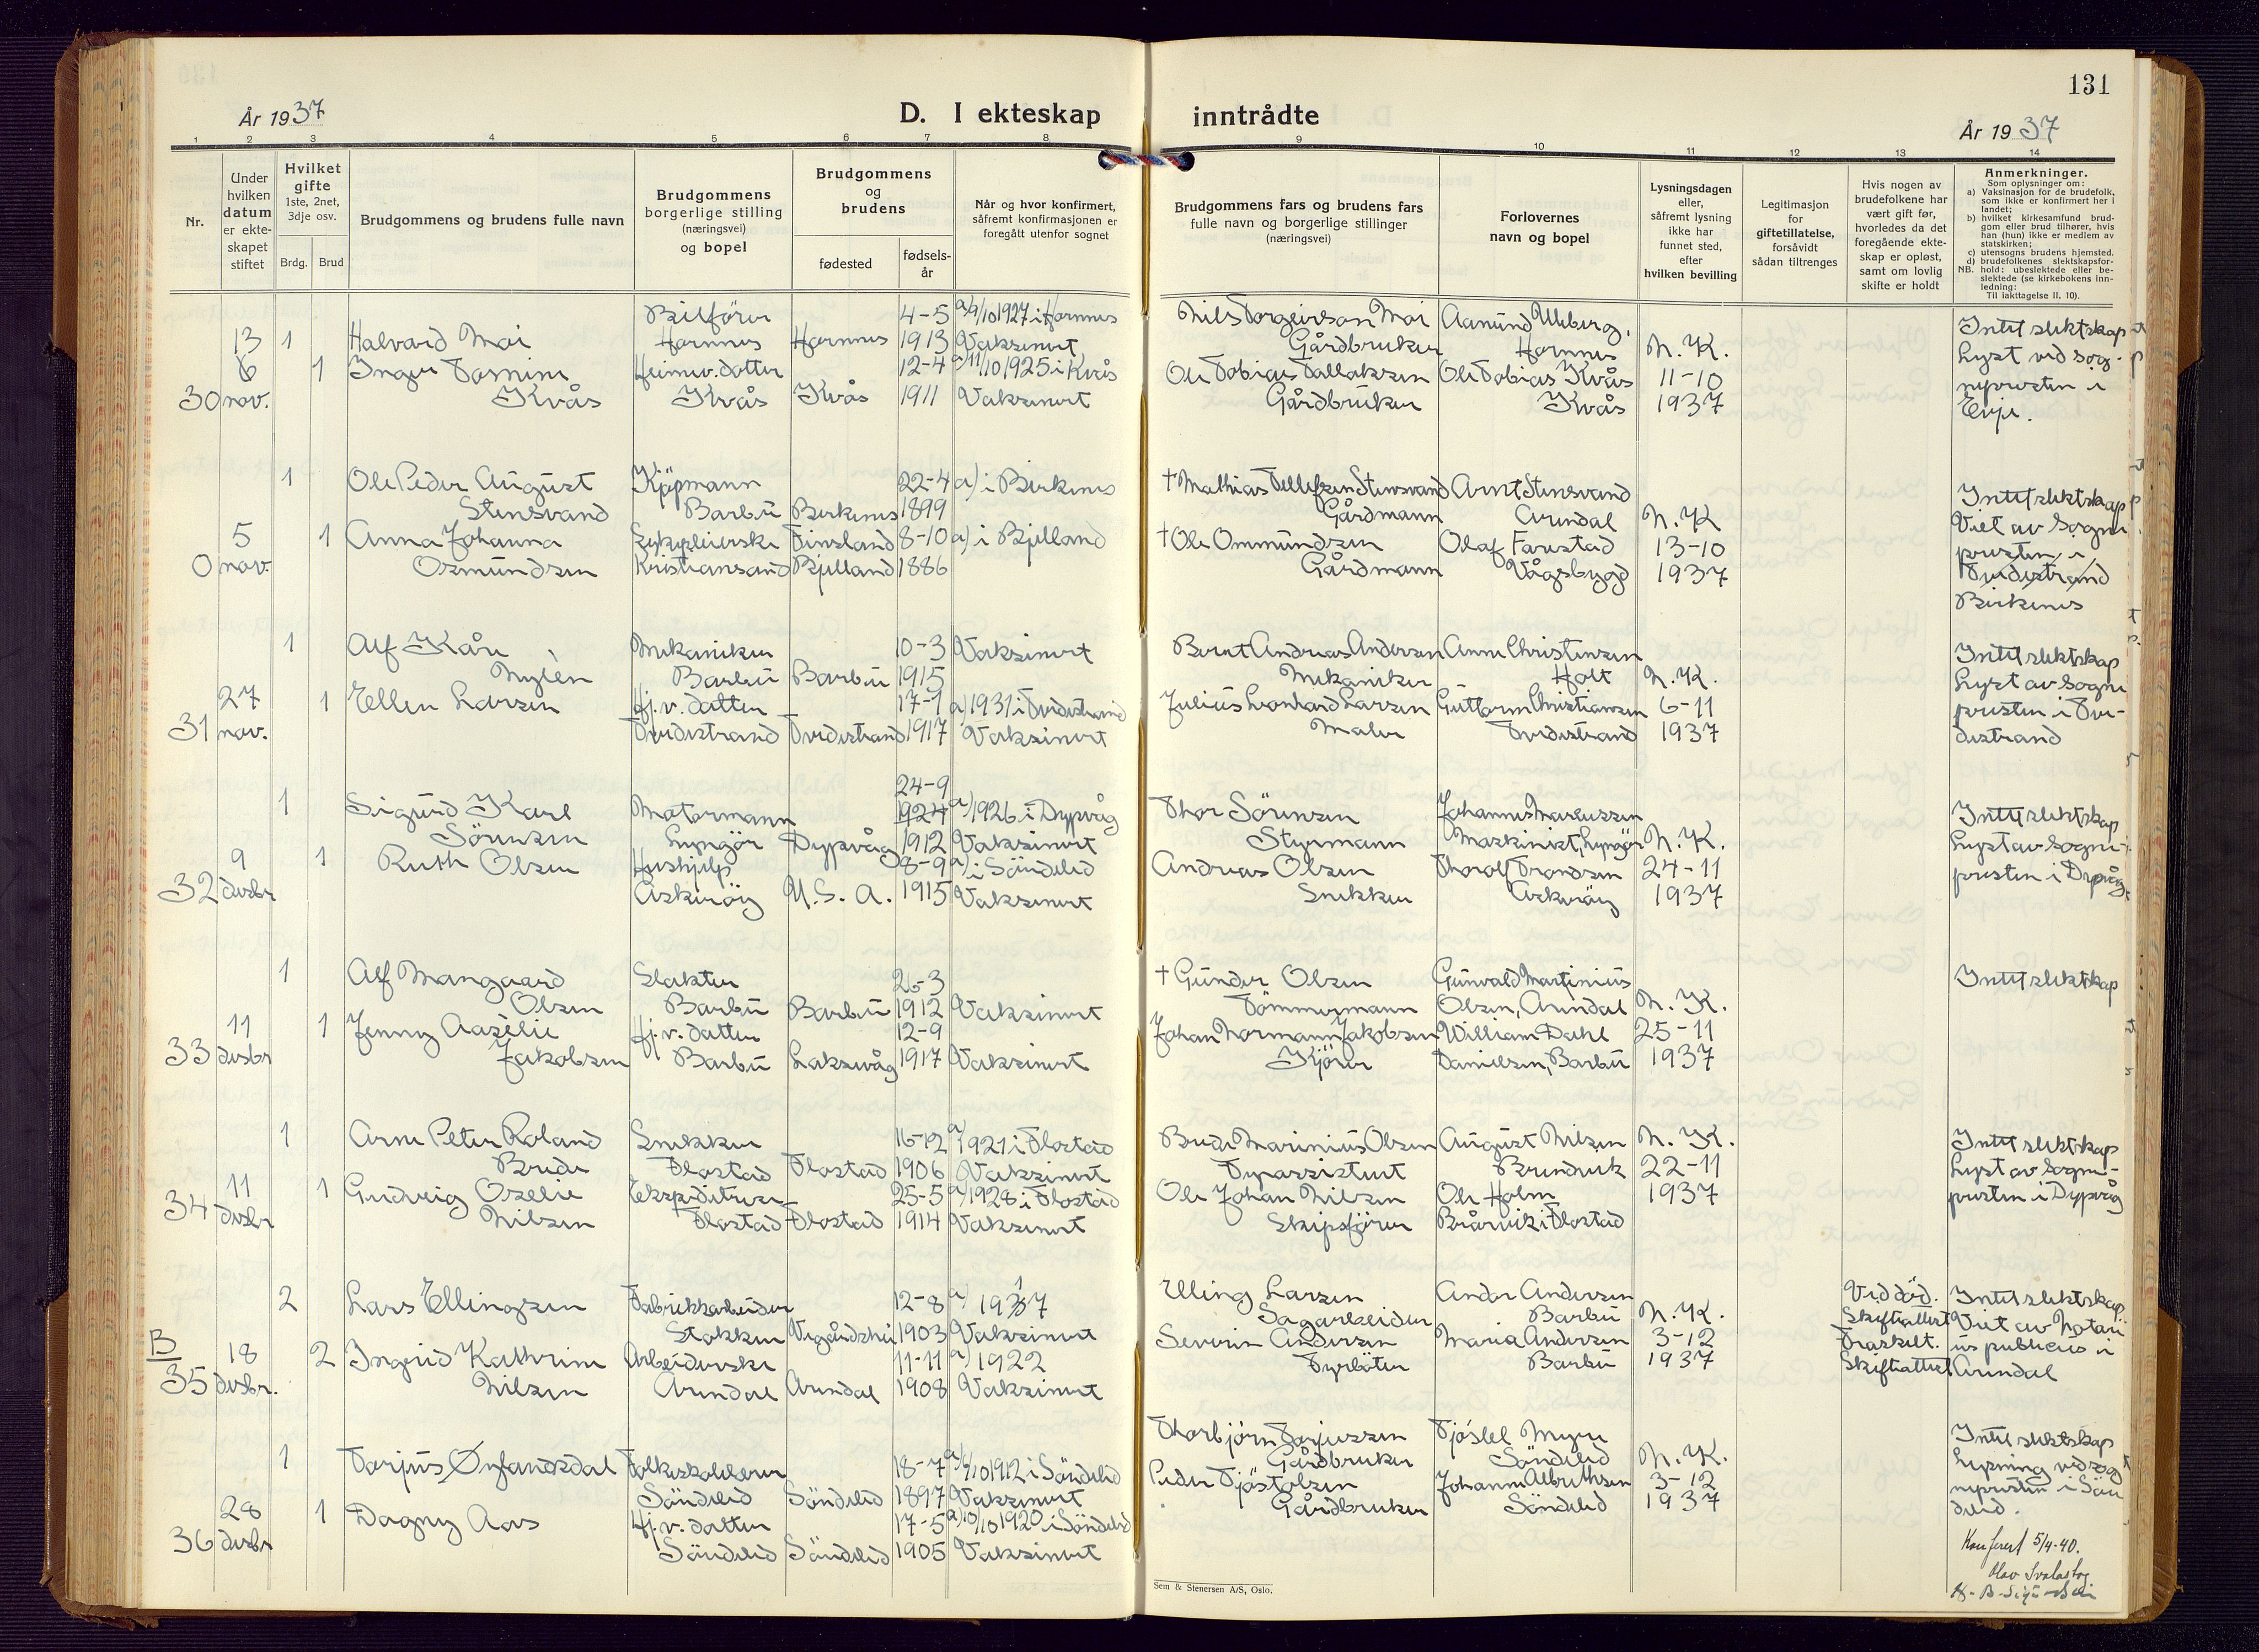 131
År 1937
D. I ekteskap inntrådte
År 1937
1 2 3 4 5 6 7 8 9 10 11 12 13 14
Nr.
Under hvilken datum er ekte-skapet stiftet
Hvilket gifte 1ste, 2net, 3dje osv.
Brdg. Brud
Brudgommens og brudens fulle navn
Brudgommens borgerlige stilling (næringsvei) og bopel
Brudgommens og brudens
fødested
fødsels-år
Når og hvor konfirmert, såfremt konfirmasjonen er foregått utenfor sognet
Brudgommens fars og brudens fars fulle navn og borgerlige stillinger (næringsvei)
Forlovernes navn og bopel
Lysningsdagen eller, såfremt lysning ikke har funnet sted, efter hvilken bevilling
Legitimasjon for giftetillatelse, forsåvidt sådan tiltrenges
Hvis nogen av brudefolkene har vært gift før, hvorledes da det foregående ekte-skap er opløst, samt om lovlig skifte er holdt
Anmerkninger.
Som oplysninger om:
a) Vaksinasjon for de brudefolk, som ikke er konfirmert her i landet;
b) hvilket kirkesamfund brud-gom eller brud tilhører, hvis han (hun) ikke er medlem av statskirken;
c) utensogns brudens hjemsted.
d) brudefolkenes slektskapsfor-
NB. hold: ubeslektede eller be-slektede (se kirkebokens inn-ledning: Til iakttagelse II, 10).
Bilförer 4-5 a) 9/10 1927 i Hornnes Nils Torgeirson Moi Aamund Uleberg,
13 1 Halvard Moi Hornnes Hornnes 1913 Vaksinert Gårdbruker Hornnes N. K. Intet slektskap
6 1 Inger Tomine Heimev. datter 12-4 a) 11/10 1925 i Kvås Ole Tobias Tallaksen Ole Tobias Kvås 11-10 Lyst ved sog-
30 nov. Kvås Kvås Kvås 1911 Vaksinert Gårdbruker Kvås 1937 nepresten i
Evje.
1 Ole Peder August Kjøpmann 22-4 a) i Birkenes † Mathias Tellefsen Stensvand Arnt Stensvand
Stensvand Barbu Birkenes 1899 Gårdmann Arendal N. K Intet slektskap
5 1 Anna Johanna Sykepleierske Finsland 8-10 a) i Bjelland † Ole Ommundsen Olaf Farestad 13-10 Viet av Sogne
0 nov. Osmundsen Kristiansand Bjelland 1886 Gårdmann Vågsbygd 1937 presten i
Tvedestrand
Birkenes
1 Alf Kåre Mekaniker 10-3 Vaksinert Bernt Andreas Andersen Anne Christensen Intet slektskap
Nylèn Barbu Barbu 1915 Mekaniker Holt N. K. Lyst av Sogne
27 1 Ellen Larsen Hj. v. datter 17-1 a) 1931 i Tvedestrand Julius Leonhard Larsen Guttorm Christiansen 6-11 presten i Tve-
31 nov. Tvedestrand Tvedestrand 1917 Vaksinert Maler Tvedestrand 1937 destrand
24-9
1 Sigurd Karl Motormann 924 a) 1926 i Dypvåg Thor Sörensen Johannes Markussen Intet slektskap
Sörensen Lyngör Dypvåg 1912 Vaksinert Styrmann Maskinist, Lyngör N. K. Lyst av Sogne-
9 1 Ruth Olsen Hushjelp 8-9 a) i Söndeled Andreas Olsen Thorolf Trondsen 24-11 presten i Dypvåg.
32 desbr Askeröy U. S. A. 1915 Vaksinert Snekker Askeröy 1937
1 Alf Mangaard Slakter 26-3 † Gunder Olsen Gunvald Martinius Intet slektskap
Olsen Barbu Barbu 1912 Vaksinert Tömmermann Olsen, Arendal N. K.
11 1 Jenny Aasèlie Hj. v. datter 12-9 Johan Normann Jakobsen William Dahl 25-11
33 desbr Jakobsen Barbu Laksevåg 1917 Vaksinert Kjörer Danielsen, Barbu 1937
1 Arne Peter Roland Snekker 16-12 a) 1921 i Flostad Brede Marinius Olsen August Nilsen N. K. Intet slektskap
Brede Flostad Flostad 1906 Vaksinert Fyrassistent Brendvik 22-11 Lyst av Sogne-
11 1 Gudveig Oselie Ekspeditrise 25-5 a) 1928 i Flostad Ole Johan Nilsen Ole Holm 1937 presten i Dypvåg
34 desbr Nilsen Flostad Flostad 1914 Vaksinert Skipsförer Borårvik i Flostad
2 Lars Ellingsen Fabrikkarbeider 12-8 a) 1937 Elling Larsen Andor Andersen Ved död. Intet slektskap
Stokken Vegårdshei 1903 Vaksinert Sagarbeider Barbu N. K. Skifteattest Viet av Notari
B 18 2 Ingrid Kathrine Arbeiderske 11-11 a) 1922 Severin Andersen Maria Andersen 3-12 Fraskilt. us publicus i
35 desbr. Nilsen Arendal Arendal 1908 Vaksinert Fyrböter Barbu 1937 Skifteattest Arendal
1 Torjus Ønfandsdal Folkeskolelærer 18-7 a) 6/10 1912 i Söndeled Thorbjörn Torjussen Tjöstel Myre Intet slektskap
Söndeled Söndeled 1897 Vaksinert Gårdbruker Söndeled N. K. Lysning ved sog
28 1 Dagny Aas Hj. v. datter 17-5 a) 10/10 1920 i Söndeled Peder Tjöstolsen Johanne Albrethsen 3-12 nepresten i Sön
36 desbr Söndeled Söndeled 1905 Vaksinert Gårdbruker Söndeled 1937 deled.
Konferert 5/4-40.
Olav Svalastog
Sem & Stenersen A/S, Oslo.